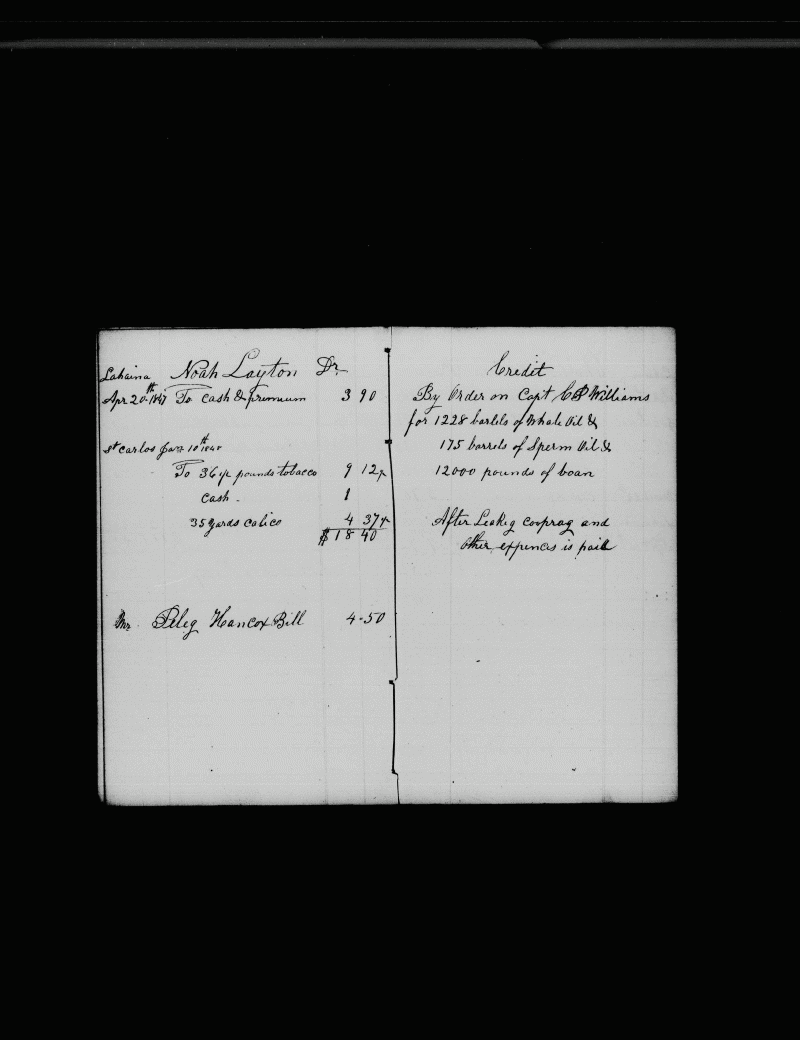 Lahaina Noah Layton Dr
Apr 20th 1847 To Cash & premium 3 90
St Carlos Jan 10th 1848
To 36 1/2 pounds tobacco 9 12
Cash 1
35 yards calico 4 37
$18 40
Peleg Hancox Bill 4.50
Credit
By Order on Capt C P Williams
for 1228 barlels of Whale Oil &
175 barrels of Sperm Oil &
12000 pounds of boan
After Leakeg cooprag and
other expences is paid